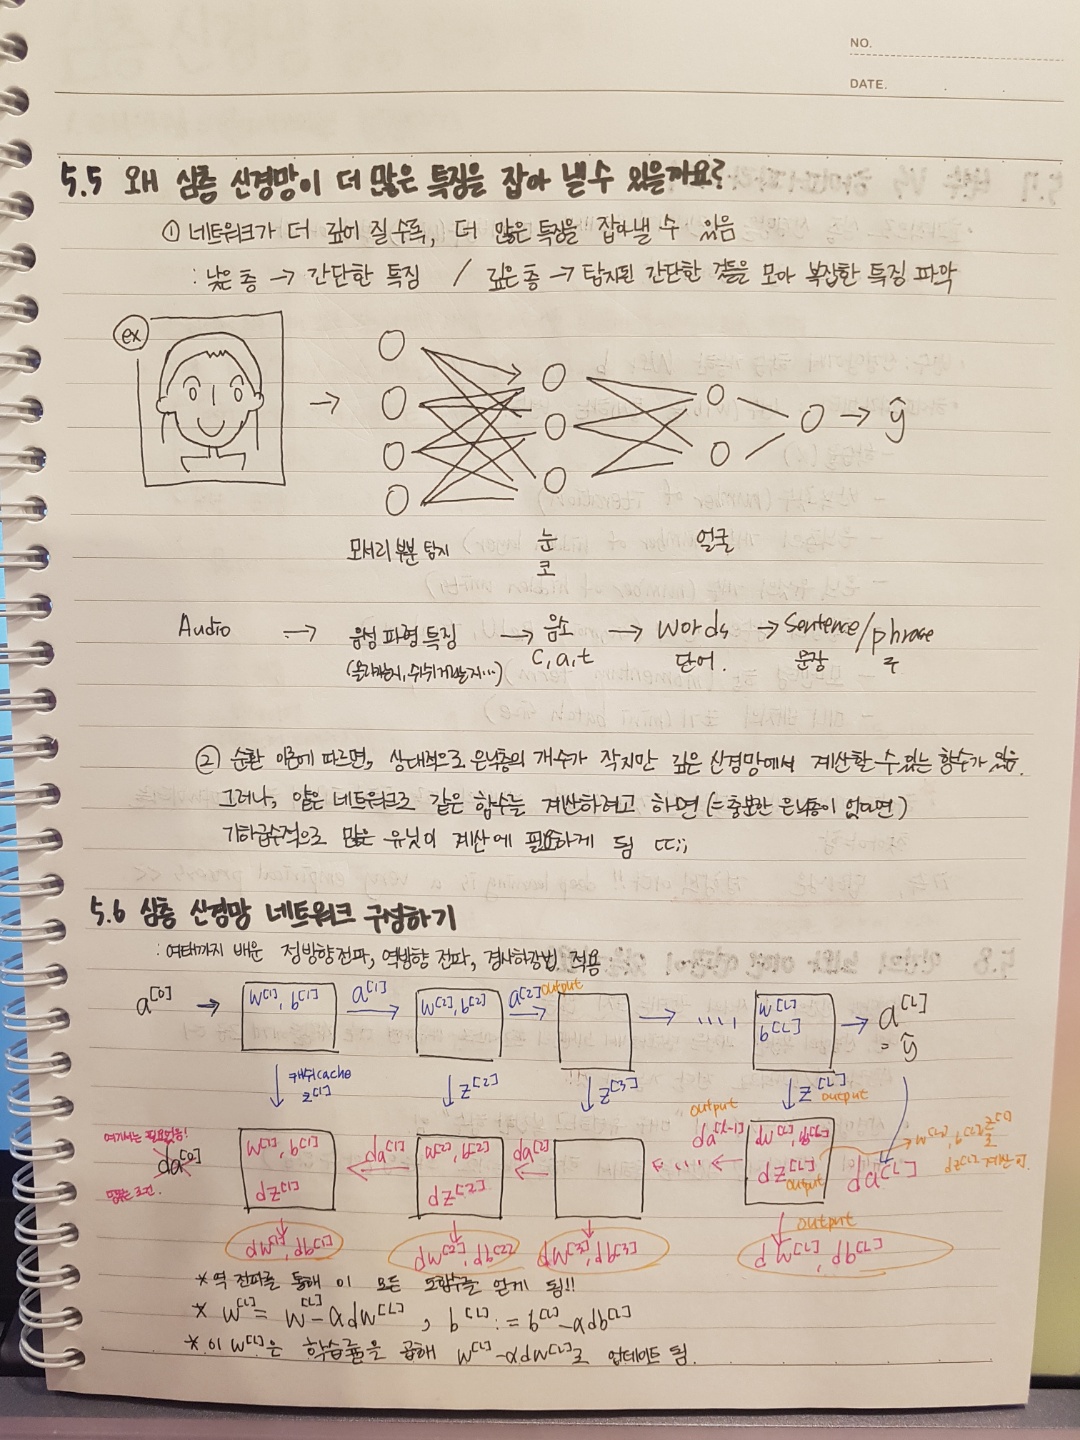 NO.
DATE.
5.5 왜 심층 신경망이 더 많은 특징을 잡아 낼 수 있을까요?
① 네트워크가 더 깊어 질 수록, 더 많은 특징을 잡아낼 수 있음
: 낮은 층 → 간단한 특징 / 깊은 층 → 탐지된 간단한 것들을 모아 복잡한 특징 파악
ex
→ ŷ
모서리 부분 탐지 눈 얼굴
코
Audio → 음성 파형 특징 → 음소 → words → sentence/phrase
c, a, t 단어. 문장 구
② 순환 이론에 따르면, 상대적으로 은닉층의 개수가 작지만 깊은 신경망에서 계산할 수 있는 함수가 있음.
그러나, 얕은 네트워크로 같은 함수를 계산하려고 하면 (= 충분한 은닉층이 없다면)
기하급수적으로 많은 유닛이 계산에 필요하게 됨 ㄷㄷ;;
5.6 심층 신경망 네트워크 구성하기
: 여태까지 배운 정방향전파, 역방향 전파, 경사하강법 적용
a[0] → w[1], b[1] a[1] → w[2], b[2] a[2] output → → ‥‥ w[L] b[L] → a[L] = ŷ
↓ 캐쉬cache z[1] ↓ z[2] ↓ z[3] ↓ z[L] output
output
여기서는 필요없음! da[0] w[1], b[1] dz[1] ← da[1] w[2], b[2] dz[2] ← da[2] ← ‥‥ ← da[L-1] dw[L], b[L] dz[L] output da[L] → w[L], b[L], z[L] dz[L] 계산 시
output
dw[1], db[1] dw[2], db[2] dw[3], db[3] dw[L], db[L]
* 역 전파를 통해 이 모든 도함수를 얻게 됨!!
* w[L] = w[L] - αdw[L], b[L] := b[L] - αdb[L]
* 이 w[L]은 학습률을 곱해 w[L] - αdw[L]로 업데이트 됨.